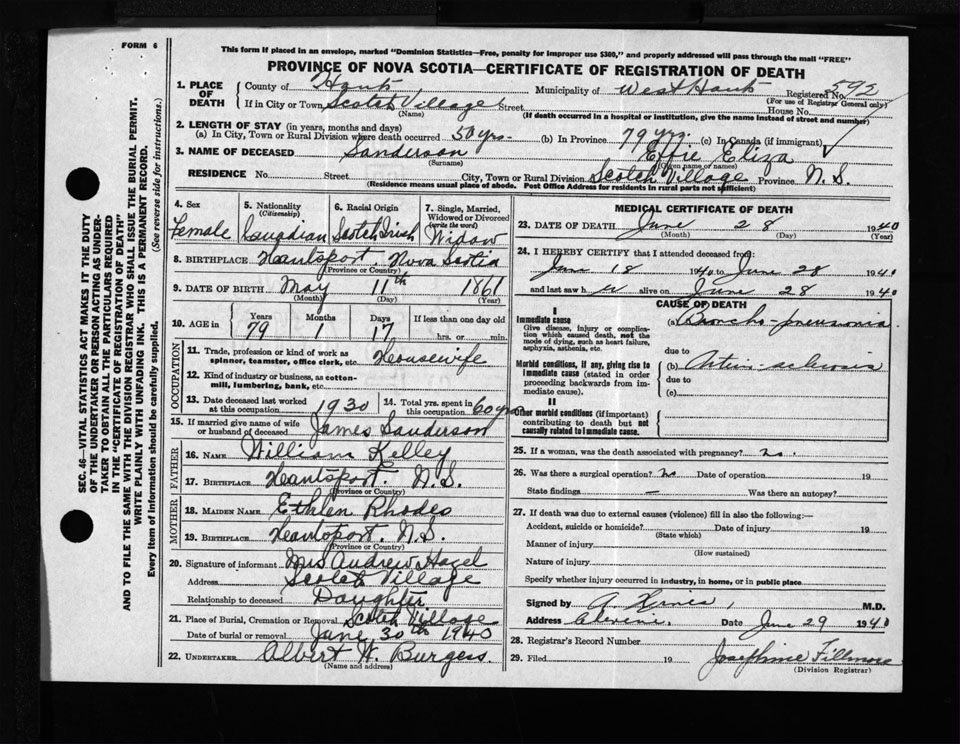 FORM 6
This form if placed in an envelope, marked "Dominion Statistics—Free, penalty for improper use $300," and properly addressed will pass through the mail "FREE"
PROVINCE OF NOVA SCOTIA—CERTIFICATE OF REGISTRATION OF DEATH
1. PLACE OF DEATH
County of Hants Municipality of West Hants Registered No. 592
(For use of Registrar General only)
If in City or Town Scotch Village Street House No.
(Name) (If death occurred in a hospital or institution, give the name instead of street and number)
2. LENGTH OF STAY (in years, months and days)
(a) In City, Town or Rural Division where death occurred 50 yrs. (b) In Province 79 yrs. (c) In Canada (if immigrant)
3. NAME OF DECEASED Sanderson Effie Eliza
(Surname) (Given name or names)
RESIDENCE No. Street City, Town or Rural Division Scotch Village Province N. S.
(Residence means usual place of abode. Post Office Address for residents in rural parts not sufficient)
4. Sex Female
5. Nationality (Citizenship) Canadian
6. Racial Origin Scotch Irish
7. Single, Married, Widowed or Divorced (write the word) Widow
8. BIRTHPLACE Hantsport. Nova Scotia
(Province or Country)
9. DATE OF BIRTH May 11th 1861
(Month) (Day) (Year)
10. AGE in Years 79 Months 1 Days 17 If less than one day old hrs. or min.
OCCUPATION
11. Trade, profession or kind of work as spinner, teamster, office clerk, etc. Housewife
12. Kind of industry or business, as cotton-mill, lumbering, bank, etc.
13. Date deceased last worked at this occupation 1930
14. Total yrs. spent in this occupation 60 yrs
15. If married give name of wife or husband of deceased James Sanderson
FATHER
16. NAME William Kelley
17. BIRTHPLACE Hantsport. N.S.
(Province or Country)
MOTHER
18. MAIDEN NAME Ethlen Rhodes
19. BIRTHPLACE Hantsport. N.S.
(Province or Country)
20. Signature of informant Mrs Andrew Hazel
Address Scotch Village
Relationship to deceased Daughter
21. Place of Burial, Cremation or Removal Scotch Village
Date of burial or removal June 30th 1940
22. UNDERTAKER Albert W. Burgess.
(Name and address)
MEDICAL CERTIFICATE OF DEATH
23. DATE OF DEATH June 28 1940
(Month) (Day) (Year)
24. I HEREBY CERTIFY that I attended deceased from:
18 1940 to June 28 1940
and last saw h alive on June 28 1940
CAUSE OF DEATH
I
Immediate cause
Give disease, injury or complication which caused death, not the mode of dying, such as heart failure, asphyxia, asthenia, etc.
(a) Broncho-pneumonia
due to
Morbid conditions, if any, giving rise to immediate cause (stated in order proceeding backwards from immediate cause).
(b) Arterio-sclerosis
due to
(c)
II
Other morbid conditions (if important) contributing to death but not causally related to immediate cause.
25. If a woman, was the death associated with pregnancy? no.
26. Was there a surgical operation? no Date of operation 19
State findings — Was there an autopsy?
27. If death was due to external causes (violence) fill in also the following:—
Accident, suicide or homicide? Date of injury 19
(State which)
Manner of injury
(How sustained)
Nature of injury
Specify whether injury occurred in industry, in home, or in public place
Signed by A. M.D.
Address Date June 29 1940
28. Registrar's Record Number
29. Filed 19 Josephine Fillmore
(Division Registrar)
SEC. 46—VITAL STATISTICS ACT MAKES IT THE DUTY
OF THE UNDERTAKER OR PERSON ACTING AS UNDER-
TAKER TO OBTAIN ALL THE PARTICULARS REQUIRED
IN THE "CERTIFICATE OF REGISTRATION OF DEATH"
AND TO FILE THE SAME WITH THE DIVISION REGISTRAR WHO SHALL ISSUE THE BURIAL PERMIT.
WRITE PLAINLY WITH UNFADING INK. THIS IS A PERMANENT RECORD.
Every item of information should be carefully supplied. (See reverse side for instructions.)